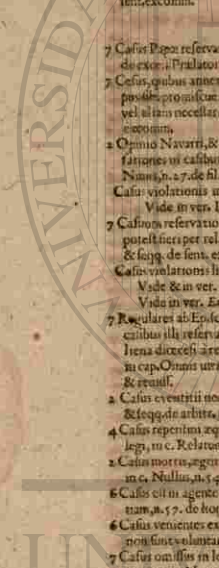 sent. excomm.
7 Casus Papæ reserva
de excõ. Prælator
7 Casus, quibus annex
vel aliam necessar
excomm.
2 Opinio Navarri, &
in casibus
n. 27. de sil.
Casus violationis
Vide in ver. I
7 Casuum reservatio
potest fieri per rel
& seqq. de sent. ex
Casus violationis li
Vide & in ver.
Vide in ver. Ec
7 Regulares ab Episc
casibus illi reserva
in cap. Omnis utri
& remiss.
2 Casus eventitii no
& seqq. de arbitr.
4 Casus repentini æq
legi, in c. Relatum
2 Casus mortis, ægri
in c. Nullus, n. 54
6 Casus est in agente
n. 57. de hom
6 Casus venientes ex
non sunt voluntar
7 Casus omissus in le
UNIVERSIDA